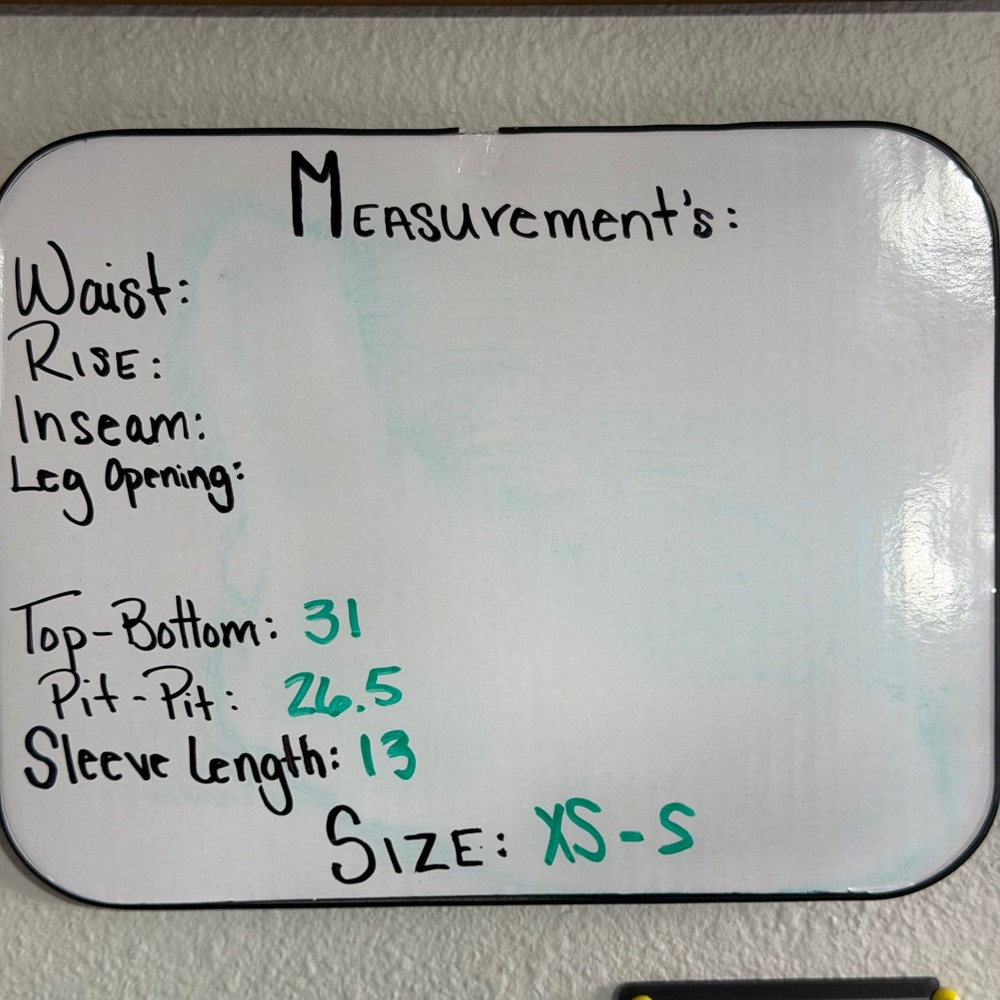 MEASurement's:
Waist:
RISE:
Inseam:
Leg Opening:
Top-Bottom: 31
Pit-Pit: 26.5
Sleeve Length: 13
SIZE: XS-S